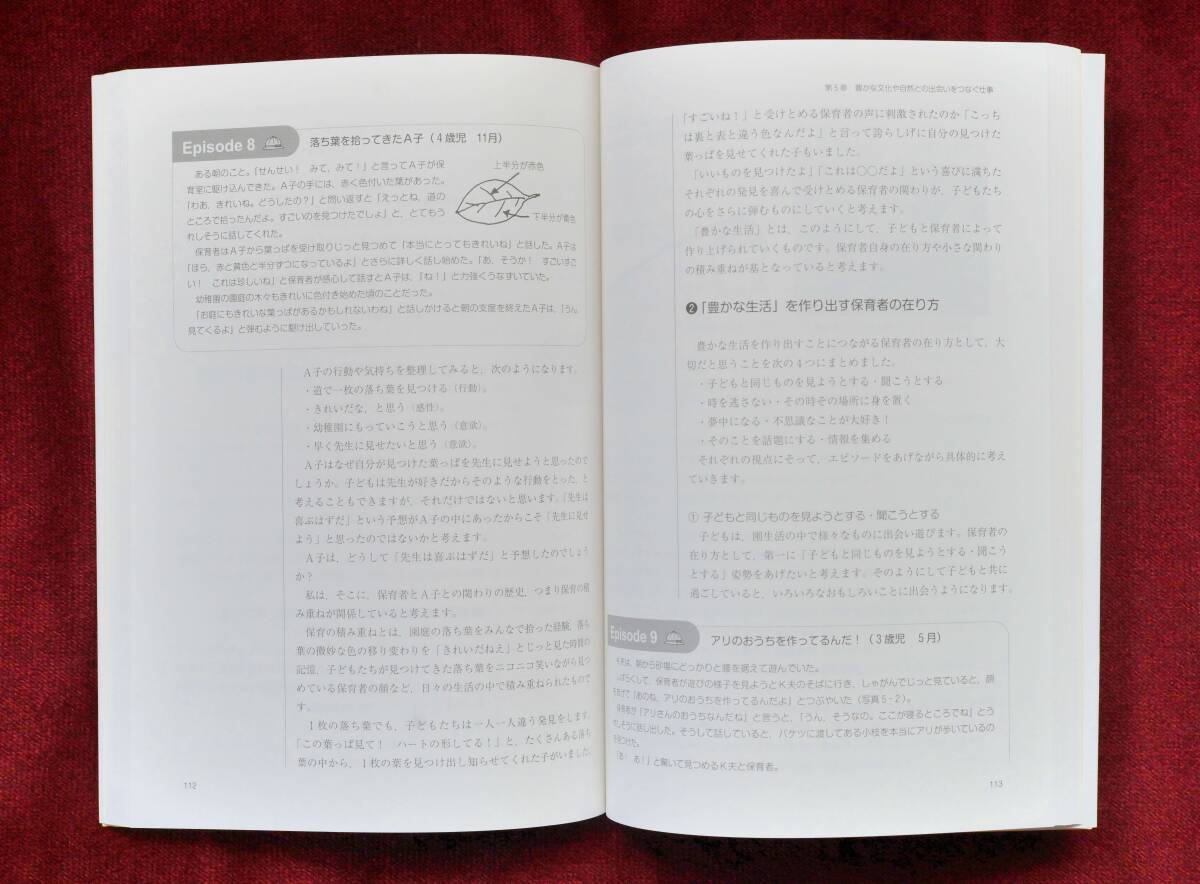 Episode 8
落ち葉を拾ってきたA子（4歳児　11月）
ある朝のこと。「せんせい！　みて、みて！」と言ってA子が保
育室に駆け込んできた。A子の手には、赤く色付いた葉があった。
「わあ、きれいね。どうしたの？」と問い返すと「えっとね、道の
ところで拾ったんだよ。すごいのを見つけたでしょ」と、とてもう
れしそうに話してくれた。
上半分が赤色
下半分が黄色
保育者はA子から葉っぱを受け取りじっと見つめて「本当にとってもきれいね」と話した。A子は
「ほら、赤と黄色と半分ずつになっているよ」とさらに詳しく話し始めた。「あ、そうか！　すごいすご
い！　これは珍しいね」と保育者が感心して話すとA子は、「ね！」と力強くうなずいていた。
幼稚園の園庭の木々もきれいに色付き始めた頃のことだった。
「お庭にもきれいな葉っぱがあるかもしれないわね」と話しかけると朝の支度を終えたA子は、「うん、
見てくるよ」と弾むように駆け出していった。
A子の行動や気持ちを整理してみると、次のようになります。
・道で一枚の落ち葉を見つける（行動）。
・きれいだな、と思う（感性）。
・幼稚園にもっていこうと思う（意欲）。
・早く先生に見せたいと思う（意欲）。
A子はなぜ自分が見つけた葉っぱを先生に見せようと思ったので
しょうか。子どもは先生が好きだからそのような行動をとった、と
考えることもできますが、それだけではないと思います。「先生は
喜ぶはずだ」という予想がA子の中にあったからこそ「先生に見せ
よう」と思ったのではないかと考えます。
A子は、どうして「先生は喜ぶはずだ」と予想したのでしょう
か？
私は、そこに、保育者とA子との関わりの歴史、つまり保育の積
み重ねが関係していると考えます。
保育の積み重ねとは、園庭の落ち葉をみんなで拾った経験、落ち
葉の微妙な色の移り変わりを「きれいだねえ」とじっと見た時間の
記憶、子どもたちが見つけてきた落ち葉をニコニコ笑いながら見つ
めている保育者の顔など、日々の生活の中で積み重ねられたもので
す。
1枚の落ち葉でも、子どもたちは一人一人違う発見をします。
「この葉っぱ見て！　ハートの形してる！」と、たくさんある落ち
葉の中から、1枚の葉を見つけ出し知らせてくれた子がいました。
112
第5章　豊かな文化や自然との出会いをつなぐ仕事
「すごいね！」と受けとめる保育者の声に刺激されたのか「こっち
は裏と表と違う色なんだよ」と言って誇らしげに自分の見つけた
葉っぱを見せてくれた子もいました。
「いいものを見つけたよ」「これは〇〇だよ」という喜びに満ちた
それぞれの発見を喜んで受けとめる保育者の関わりが、子どもたち
の心をさらに弾むものにしていくと考えます。
「豊かな生活」とは、このようにして、子どもと保育者によって
作り上げられていくものです。保育者自身の在り方や小さな関わり
の積み重ねが基となっていると考えます。
❷「豊かな生活」を作り出す保育者の在り方
豊かな生活を作り出すことにつながる保育者の在り方として、大
切だと思うことを次の4つにまとめました。
・子どもと同じものを見ようとする・聞こうとする
・時を逃さない・その時その場所に身を置く
・夢中になる・不思議なことが大好き！
・そのことを話題にする・情報を集める
それぞれの視点にそって、エピソードをあげながら具体的に考え
ていきます。
① 子どもと同じものを見ようとする・聞こうとする
子どもは、園生活の中で様々なものに出会い遊びます。保育者の
在り方として、第一に「子どもと同じものを見ようとする・聞こう
とする」姿勢をあげたいと考えます。そのようにして子どもと共に
過ごしていると、いろいろなおもしろいことに出会うようになります。
Episode 9
アリのおうちを作ってるんだ！（3歳児　5月）
K夫は、朝から砂場にどっかりと腰を据えて遊んでいた。
しばらくして、保育者が遊びの様子を見ようとK夫のそばに行き、しゃがんでじっと見ていると、顔
をあげて「あのね、アリのおうちを作ってるんだよ」とつぶやいた（写真5-2）。
保育者が「アリさんのおうちなんだね」と言うと、「うん、そうなの。ここが寝るところでね」とう
れしそうに話し出した。そうして話していると、バケツに渡してある小枝を本当にアリが歩いているの
を見つけた。
「あ！　あ！」と驚いて見つめるK夫と保育者。
113